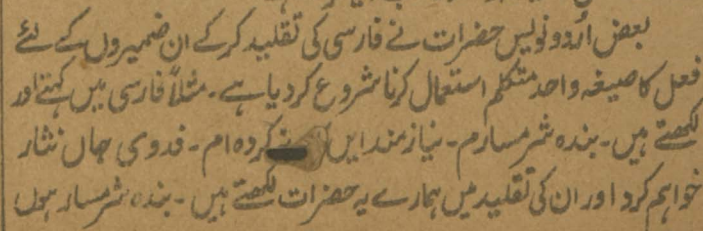 بعض اُردو نویس حضرات نے فارسی کی تقلید کر کے ان ضمیروں کے لئے
فعل کا صیغہ واحد متکلم استعمال کرنا شروع کر دیا ہے۔ مثلاً فارسی میں کہتے اور
لکھتے ہیں۔ بندہ شرمسارم۔ نیازمند ایں کردہ ام۔ فدوی جاں نثار
خواہم کرد اور ان کی تقلید میں ہمارے یہ حضرات لکھتے ہیں۔ بندہ شرمسار ہوں